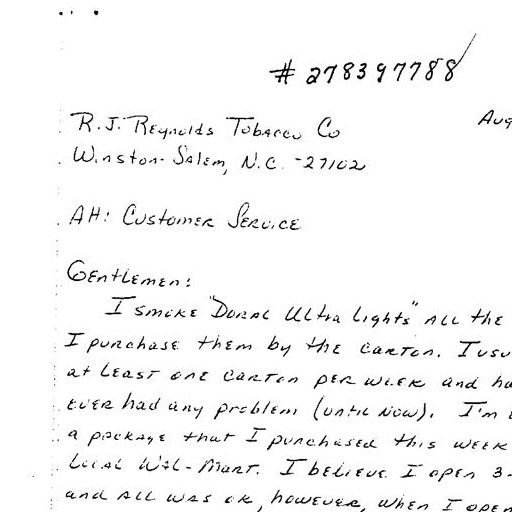 # 278397788
Aug
R.J. Reynolds Tobacco Co
Winston-Salem, N.C. -27102
Att: Customer Service
Gentlemen:
I smoke "Doral Ultra Lights" all the
I purchase them by the carton. I usu
at least one carton per week and ha
ever had any problem (until now). I'm
a package that I purchased this week
Local Wal-Mart. I believe I open 3-
and all was ok, however, when I open